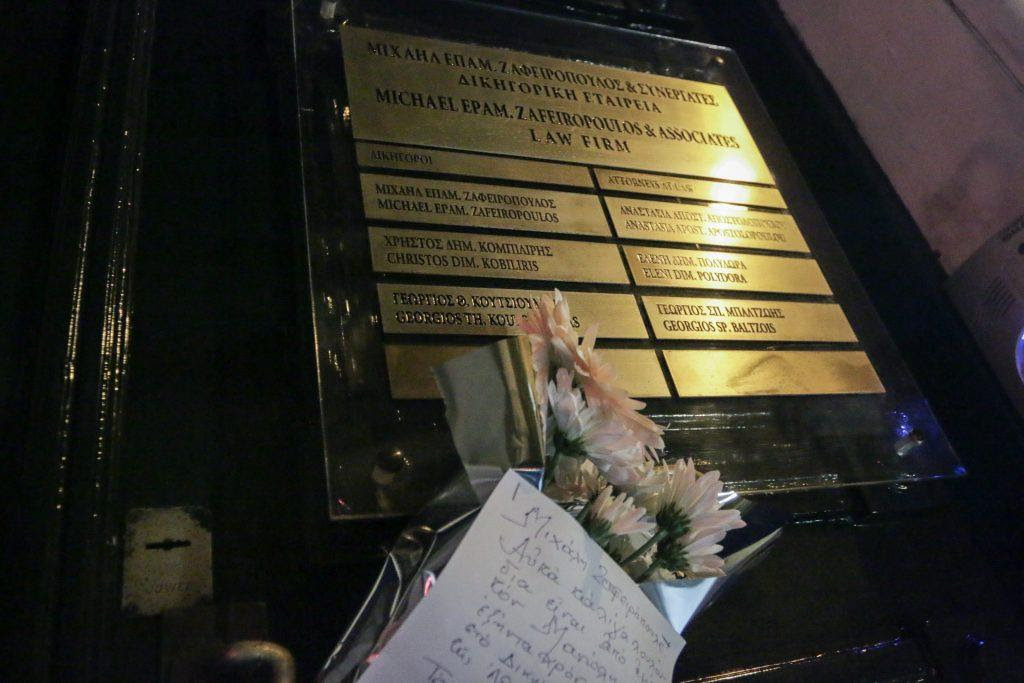 ΜΙΧΑΗΛ ΕΠΑΜ. ΖΑΦΕΙΡΟΠΟΥΛΟΣ & ΣΥΝΕΡΓΑΤΕΣ
ΔΙΚΗΓΟΡΙΚΗ ΕΤΑΙΡΕΙΑ
MICHAEL EPAM. ZAFEIROPOULOS & ASSOCIATES
LAW FIRM
ΔΙΚΗΓΟΡΟΙ
ATTORNEYS AT LAW
ΜΙΧΑΗΛ ΕΠΑΜ. ΖΑΦΕΙΡΟΠΟΥΛΟΣ
MICHAEL EPAM. ZAFEIROPOULOS
ΑΝΑΣΤΑΣΙΑ ΑΠΟΣΤ. ΑΠΟΣΤΟΛΟΠΟΥΛΟΥ
ANASTASIA APOST. APOSTOLOPOULOU
ΧΡΗΣΤΟΣ ΔΗΜ. ΚΟΜΠΙΛΙΡΗΣ
CHRISTOS DIM. KOBILIRIS
ΕΛΕΝΗ ΔΗΜ. ΠΟΛΥΔΩΡΑ
ELENI DIM. POLYDORA
ΓΕΩΡΓΙΟΣ Θ.
GEORGIOS TH.
ΓΕΩΡΓΙΟΣ ΣΠ. ΜΠΑΛΤΖΩΗΣ
GEORGIOS SP. BALTZOIS
Μιχάλη
Αυτά τα λίγα
για είναι από
τον Μανώλη
εξήντα
στο
της